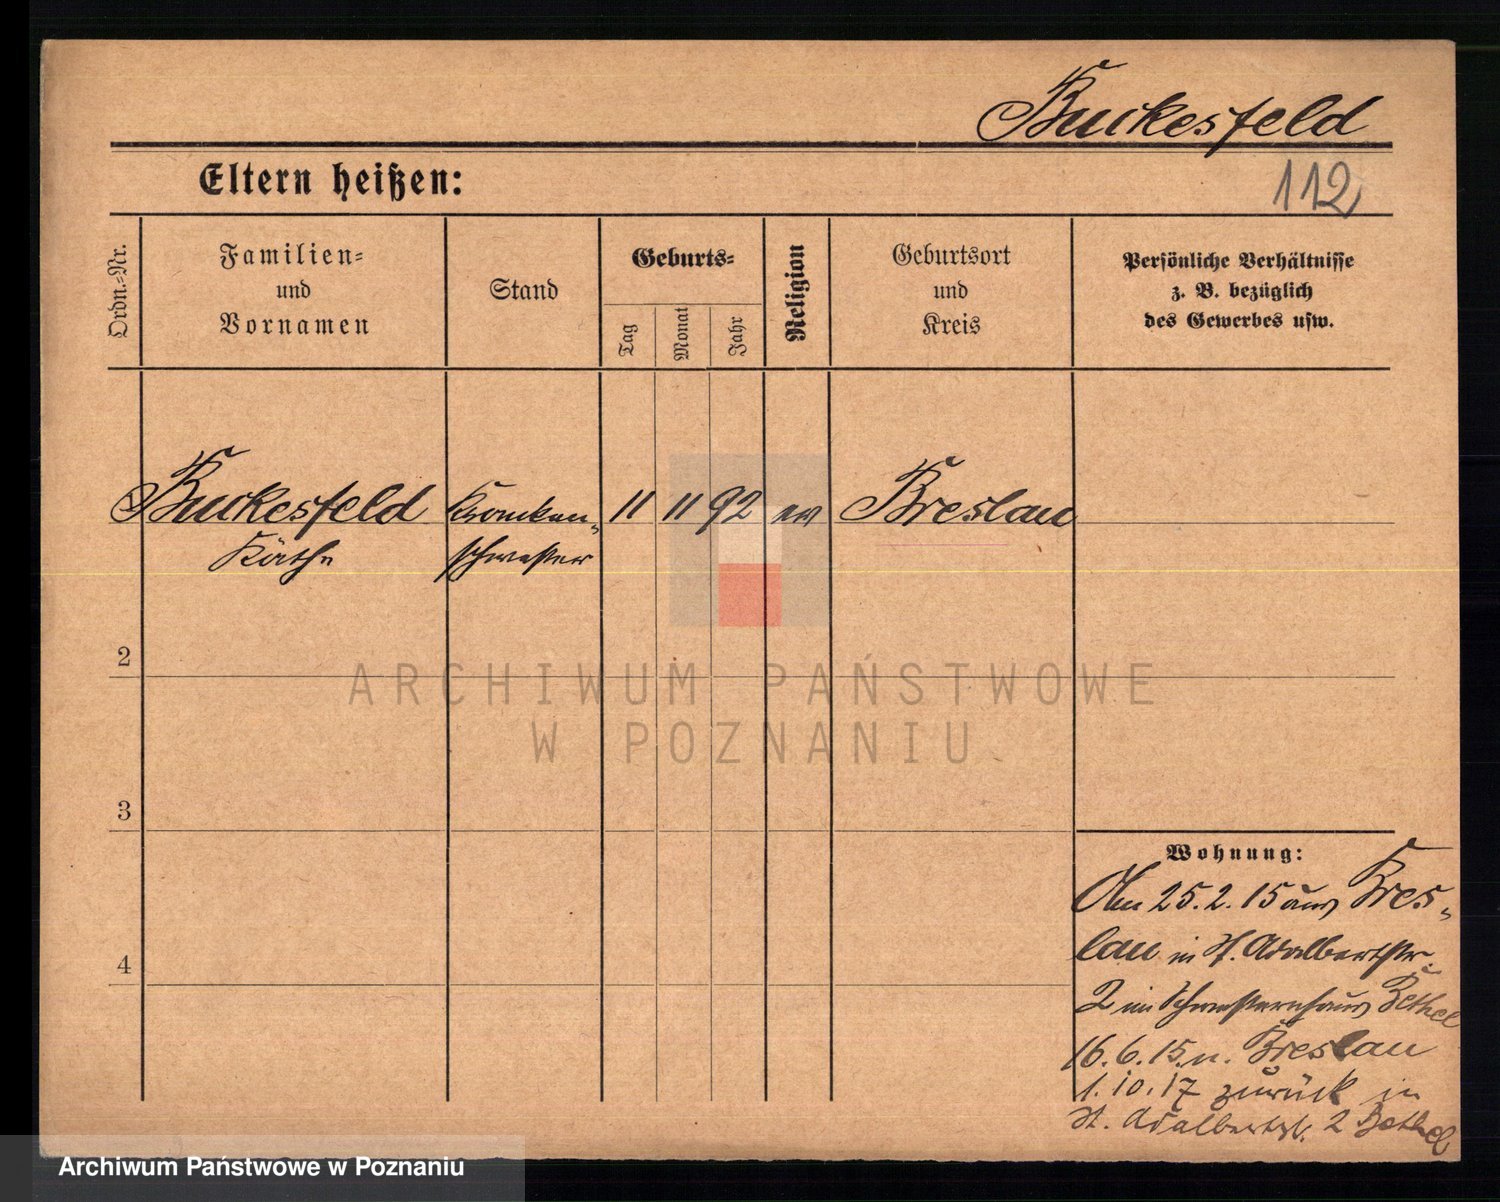 Buckesfeld
Eltern heißen:
112
Ordn.=Nr.
Familien=
und
Vornamen
Stand
Geburts=
Tag
Monat
Jahr
Religion
Geburtsort
und
Kreis
Persönliche Verhältnisse
z. B. bezüglich
des Gewerbes usw.
Buckesfeld
Käthe
Kranken-
schwester
11
11
92
ev
Breslau
2
3
4
Wohnung:
Am 25.2.15 aus Bres-
lau in St. Adalbertstr.
2 im Schwesternhaus Bethel
16.6.15 n. Breslau
1.10.17 zurück in
St. Adalbertstr. 2 Bethel
ARCHIWUM PAŃSTWOWE
W POZNANIU
Archiwum Państwowe w Poznaniu